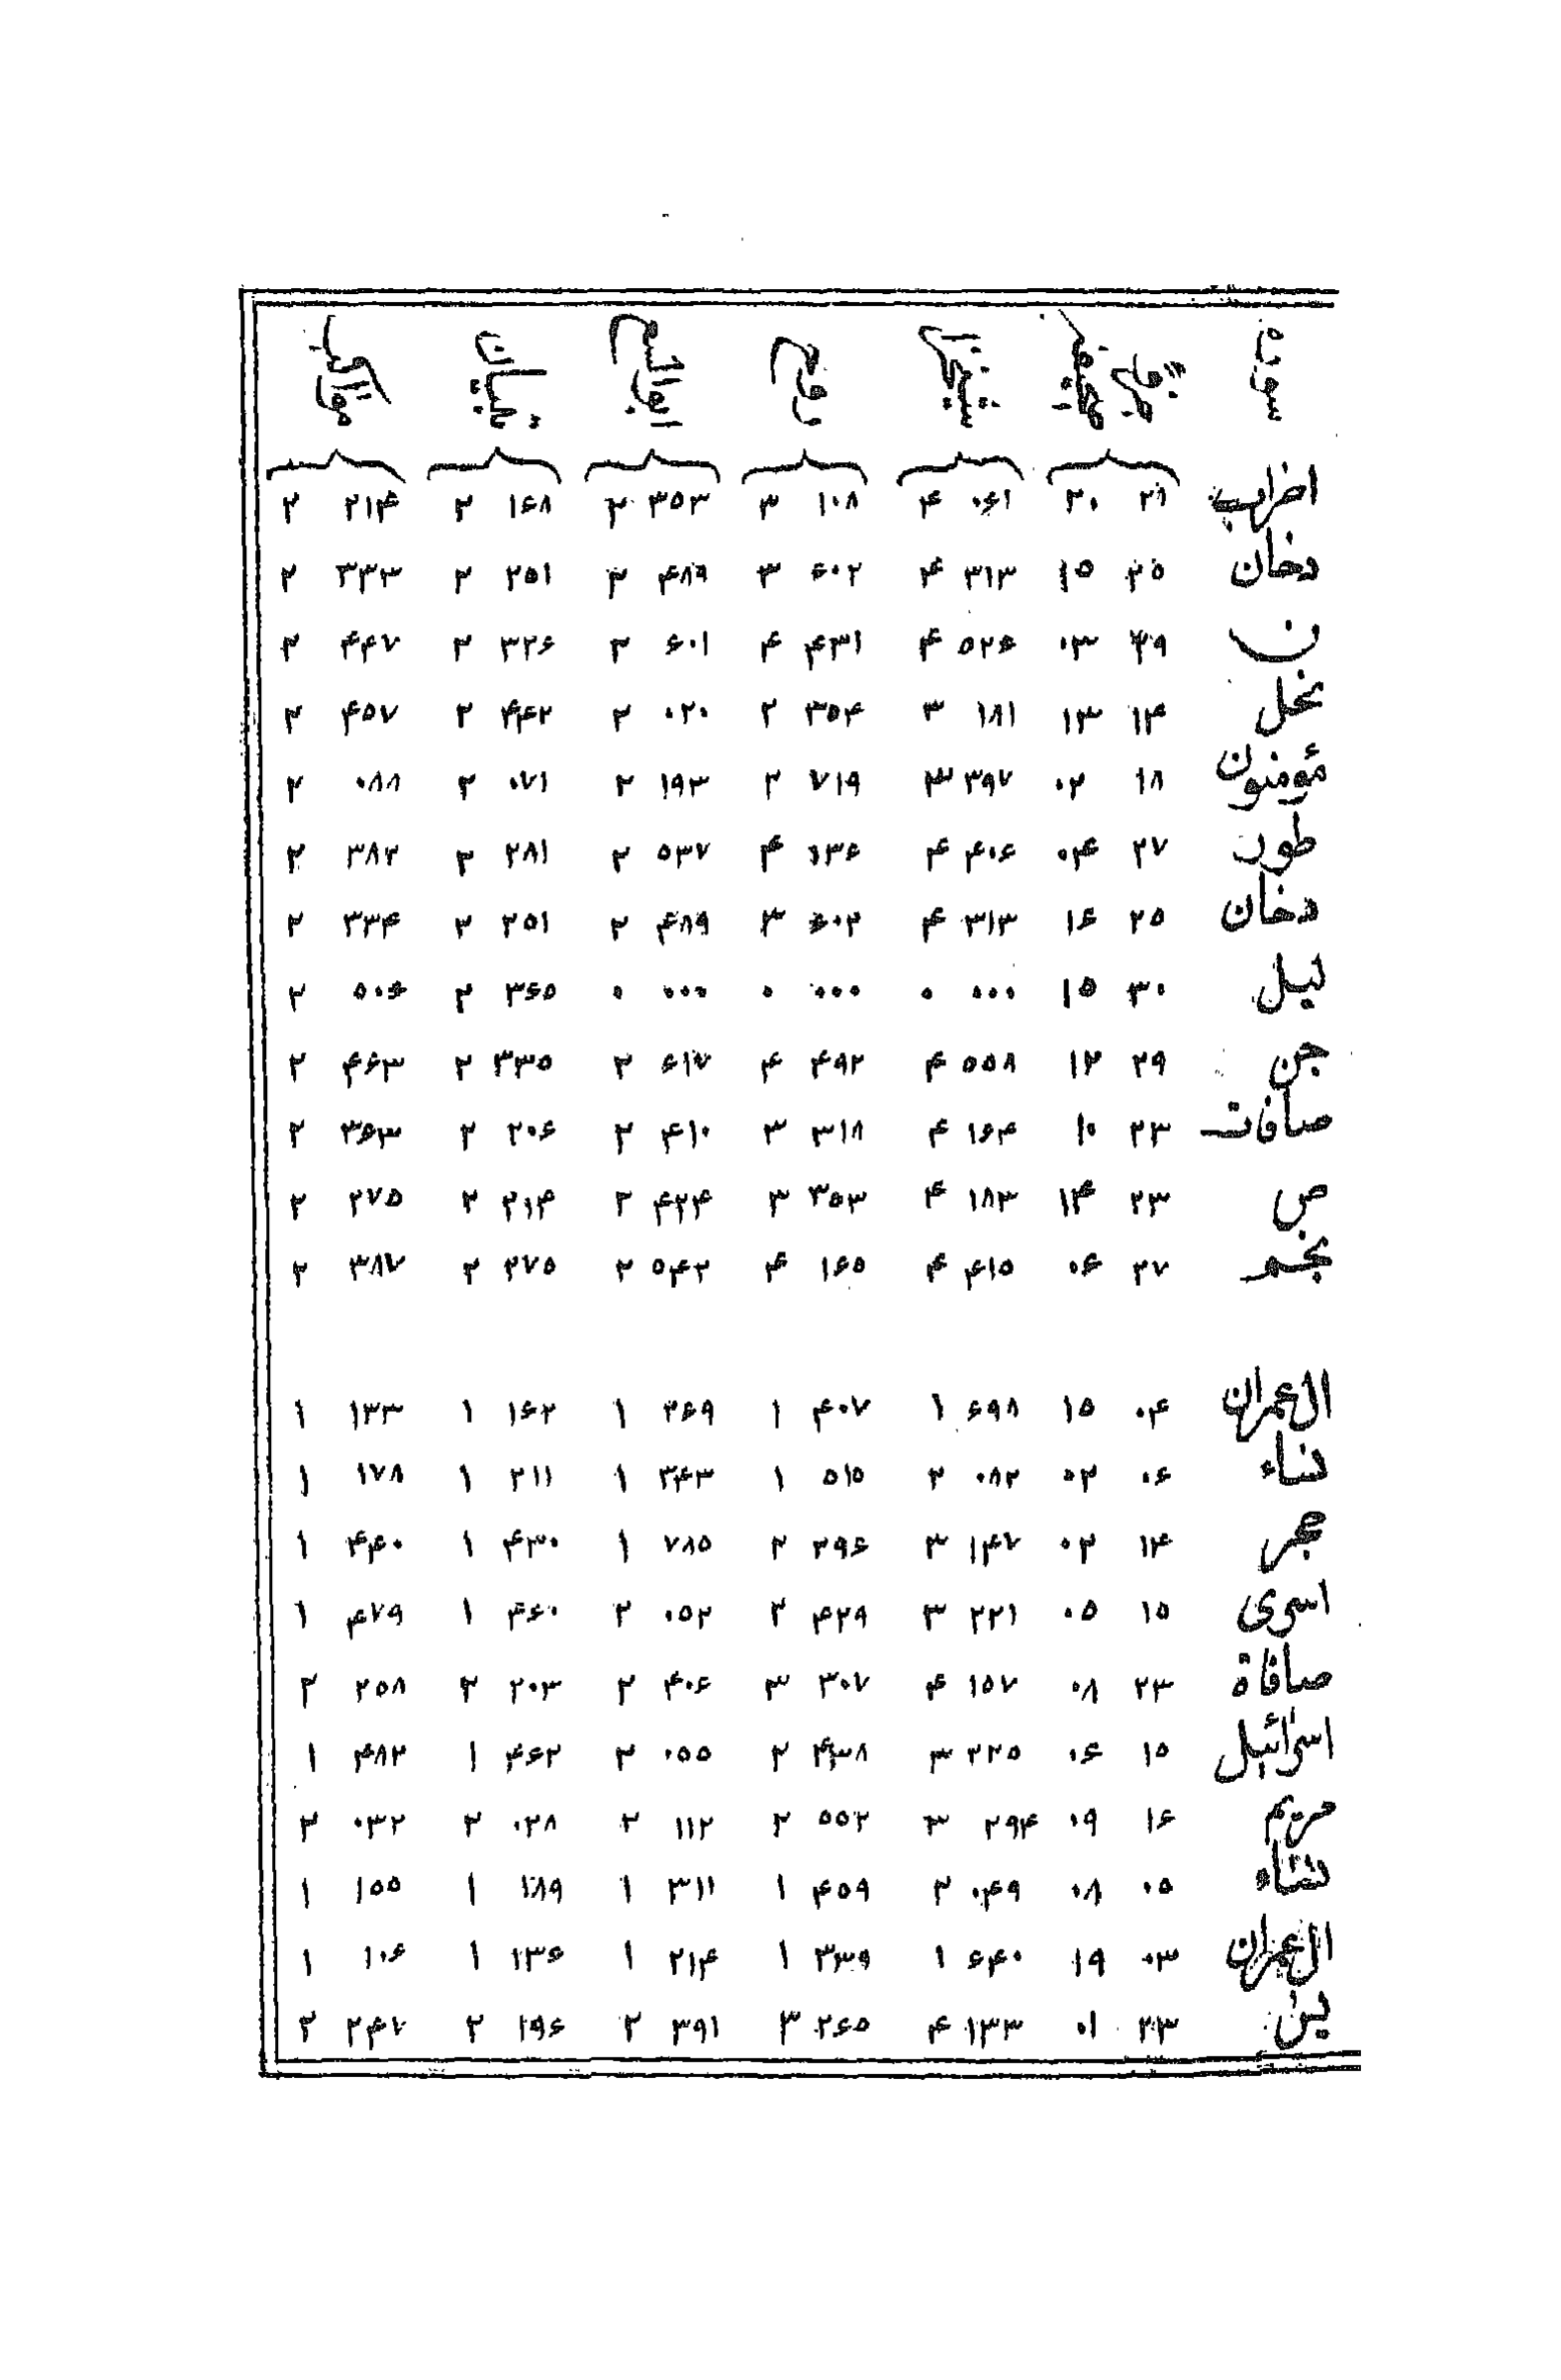 سوره
احزاب ۲۱ ۲۰ ۰۶۱ ۴ ۱۰۸ ۳ ۳۵۳ ۲ ۱۶۸ ۲ ۲۱۴ ۲
دخان ۲۵ ۱۵ ۳۱۳ ۴ ۶۰۲ ۳ ۴۸۹ ۲ ۲۵۱ ۲ ۳۳۳ ۲
ن ۲۹ ۰۳ ۵۲۶ ۴ ۴۳۱ ۴ ۶۰۱ ۲ ۳۲۶ ۲ ۴۴۷ ۲
نحل ۱۴ ۱۳ ۱۸۱ ۳ ۳۵۴ ۲ ۰۲۰ ۲ ۴۴۲ ۲ ۴۵۷ ۲
مؤمنون ۱۸ ۰۲ ۳۹۷ ۳ ۷۱۹ ۲ ۱۹۳ ۲ ۰۷۱ ۲ ۰۸۸ ۲
طور ۲۷ ۰۴ ۴۰۶ ۴ ۱۳۶ ۴ ۵۳۷ ۲ ۲۸۱ ۲ ۳۸۲ ۲
دخان ۲۵ ۱۶ ۳۱۳ ۴ ۶۰۲ ۳ ۴۸۹ ۲ ۲۵۱ ۲ ۳۳۴ ۲
لیل ۳۰ ۱۵ ۰۰۰ ۰ ۰۰۰ ۰ ۰۰۰ ۰ ۳۶۵ ۲ ۵۰۶ ۲
جن ۲۹ ۱۲ ۵۵۸ ۴ ۴۹۲ ۴ ۶۱۷ ۲ ۳۳۵ ۲ ۴۶۳ ۲
صافات ۲۳ ۱۰ ۱۶۴ ۴ ۳۱۸ ۳ ۴۱۰ ۲ ۲۰۶ ۲ ۳۶۳ ۲
ص ۲۳ ۱۴ ۱۸۳ ۴ ۳۵۳ ۳ ۴۲۴ ۲ ۲۱۴ ۲ ۲۷۵ ۲
نجم ۲۷ ۰۶ ۴۱۵ ۴ ۱۶۵ ۴ ۵۴۲ ۲ ۲۷۵ ۲ ۳۸۷ ۲
ال عمران ۰۴ ۱۵ ۶۹۸ ۱ ۴۰۷ ۱ ۲۶۹ ۱ ۱۶۲ ۱ ۱۳۳ ۱
نساء ۰۶ ۰۲ ۰۸۲ ۲ ۵۱۵ ۱ ۳۴۳ ۱ ۲۱۱ ۱ ۱۷۸ ۱
حجر ۱۴ ۰۲ ۱۴۷ ۳ ۲۹۶ ۲ ۷۸۵ ۱ ۴۳۰ ۱ ۴۴۰ ۱
اسری ۱۵ ۰۵ ۲۲۱ ۳ ۴۲۹ ۲ ۰۵۲ ۲ ۴۶۰ ۱ ۴۷۹ ۱
صافاة ۲۳ ۰۸ ۱۵۷ ۴ ۳۰۷ ۳ ۴۰۶ ۲ ۲۰۳ ۲ ۲۵۸ ۲
اسرائیل ۱۵ ۰۶ ۲۲۵ ۳ ۴۳۸ ۲ ۰۵۵ ۲ ۴۶۲ ۱ ۴۸۲ ۱
مریم ۱۶ ۰۹ ۲۹۴ ۳ ۵۵۲ ۲ ۱۱۲ ۲ ۰۲۸ ۲ ۰۳۲ ۲
نساء ۰۵ ۰۸ ۰۴۹ ۲ ۴۵۹ ۱ ۳۱۱ ۱ ۱۸۹ ۱ ۱۵۵ ۱
ال عمران ۰۳ ۱۹ ۶۴۰ ۱ ۳۳۹ ۱ ۲۱۴ ۱ ۱۳۶ ۱ ۱۰۶ ۱
یس ۲۳ ۰۱ ۱۳۳ ۴ ۲۶۵ ۳ ۳۹۱ ۲ ۱۹۶ ۲ ۲۴۷ ۲